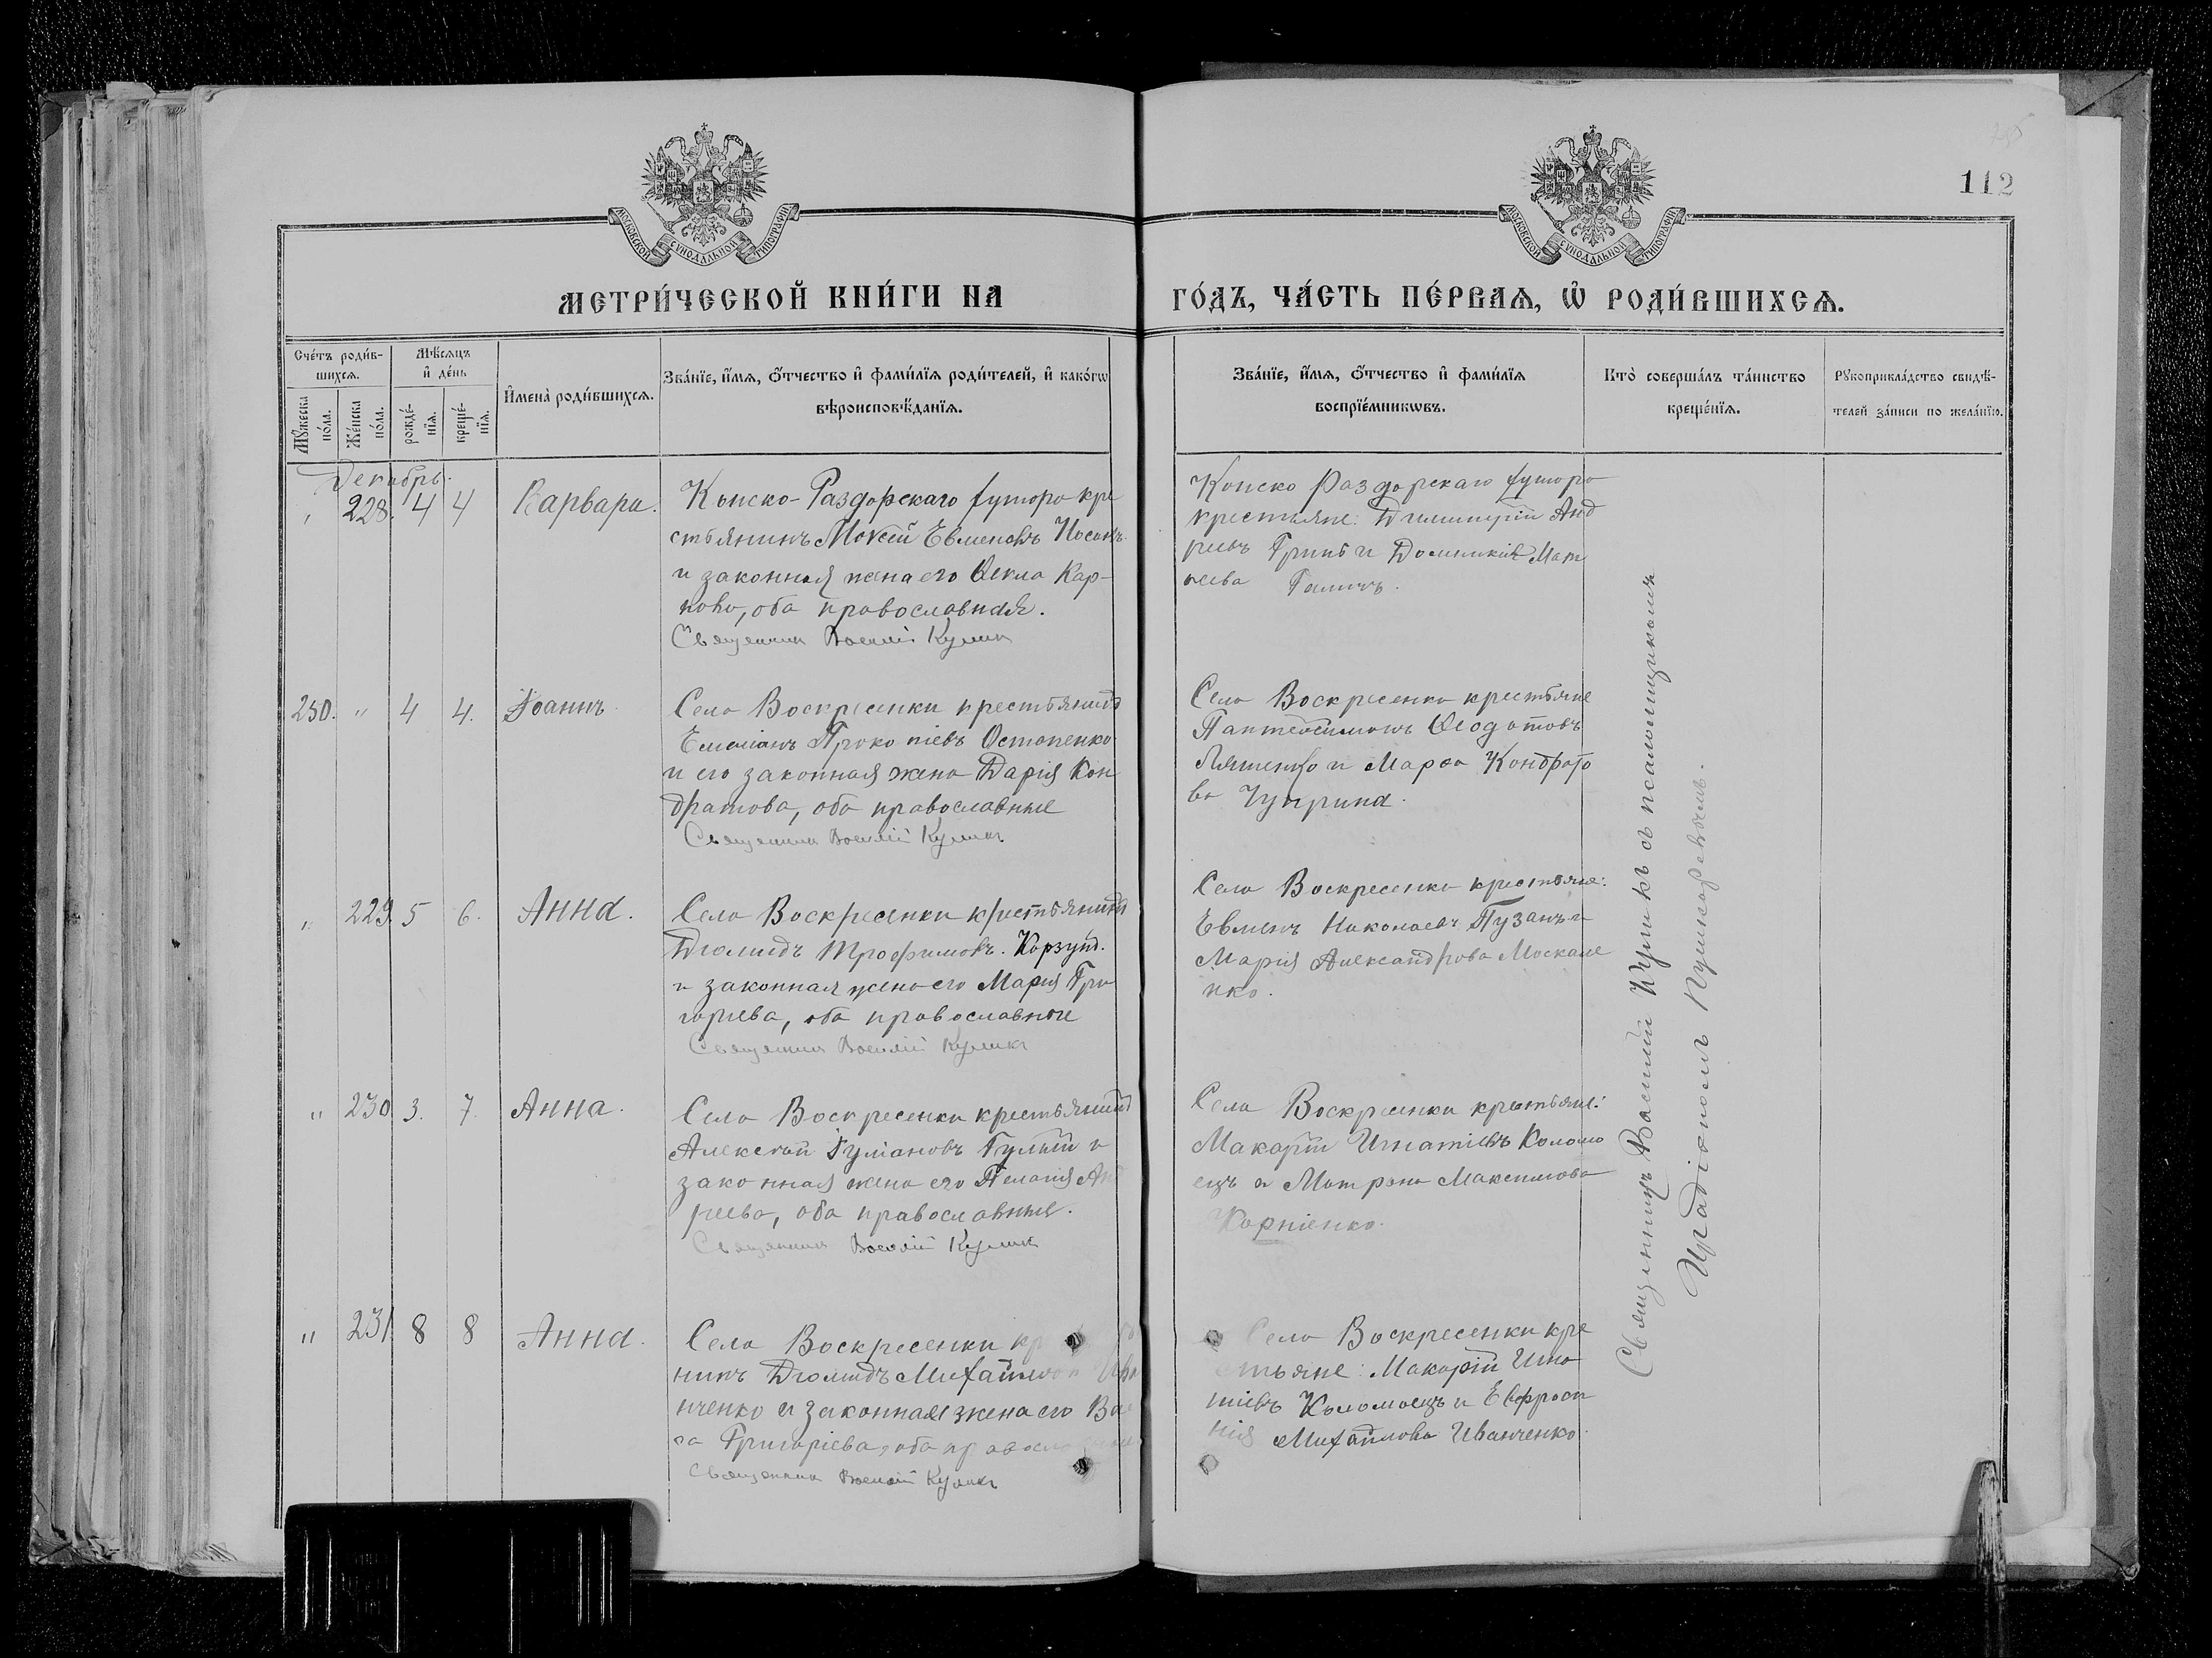 112
МОСКОВСКОЙ СУНОДАЛЬНОЙ ТИПОГРАФІИ
МОСКОВСКОЙ СУНОДАЛЬНОЙ ТИПОГРАФІИ
МЕТРИ́ЧЕСКОЙ КНИ́ГИ НА
ГО́ДЪ, ЧА́СТЬ ПЕ́РВАѦ, Ѡ҆ РОДИ́ВШИХСѦ.
Сче́тъ роди́в-
шихсѧ.
Мѣ́сѧцъ
и҆ де́нь
И҆мена̀ роди́вшихсѧ.
Зва́нїе, и҆́мѧ, ѻ҆́тчество и҆ фами́лїѧ роди́телей, и҆ како́гѡ
вѣроисповѣ́данїѧ.
Мꙋ́жеска
по́ла.
Же́нска
по́ла.
рожде́-
нїѧ.
креще́-
нїѧ.
Зва́нїе, и҆́мѧ, ѻ҆́тчество и҆ фами́лїѧ
воспрїе́мникѡвъ.
Кто̀ соверша́лъ та́инство
креще́нїѧ.
Рꙋкоприкла́дство свидѣ́-
телей за́писи по жела́нїю.
Декабрь.
" 228. 4 4 Варвара.
Конско-Раздорскаго хутора кре
стьянинъ Мокій Евменовъ Носакъ
и законная жена его Ѳекла Кар-
пова, оба православная.
Священникъ Василій Куликъ
Конско Раздорскаго хутора
крестьяне: Димитрій Анд
реевъ Грипъ и Домникія Мат
веева
250. " 4 4. Іоаннъ
Села Воскресенки крестьянинъ
Емеліанъ Прокопіевъ Остапенко
и его законная жена Дарія Кон
дратова, оба православные
Священникъ Василій Куликъ
Села Воскресенки крестьяне
Пантелеимонъ Ѳеодотовъ
Ляшенко и Марѳа Кондрато
ва Чуприна.
" 229. 5 6. Анна.
Села Воскресенки крестьянинъ
Діомидъ Трофимовъ Корзунъ.
и законная жена его Марія Гри
горіева, оба православные
Священникъ Василій Куликъ
Села Воскресенки крестьяне:
Евменъ Николаевъ Пузанъ и
Марія Александрова Москале
нко.
" 230 3. 7. Анна.
Села Воскресенки крестьянинъ
Алексѣй Гулій и
законная жена его Пелагія Анд
реева, оба православные.
Священникъ Василій Куликъ
Села Воскресенки крестьяне:
Макарій Игнатіевъ Коломо
ецъ и Матрона Максимова
Карпіенко.
" 231. 8 8 Анна.
Села Воскресенки кр
нинъ Діомидъ Михайловъ Ива
нченко и законная жена его Ва
са Григоріева, оба православные
Священникъ Василій Куликъ
Села Воскресенки кре
стьяне: Макарій Игна
тіевъ Коломоецъ и Евфроси
нія Михайлова Иванченко.
Священникъ Василій Куликъ съ псаломщикомъ
Иродіономъ Пушкаревымъ.